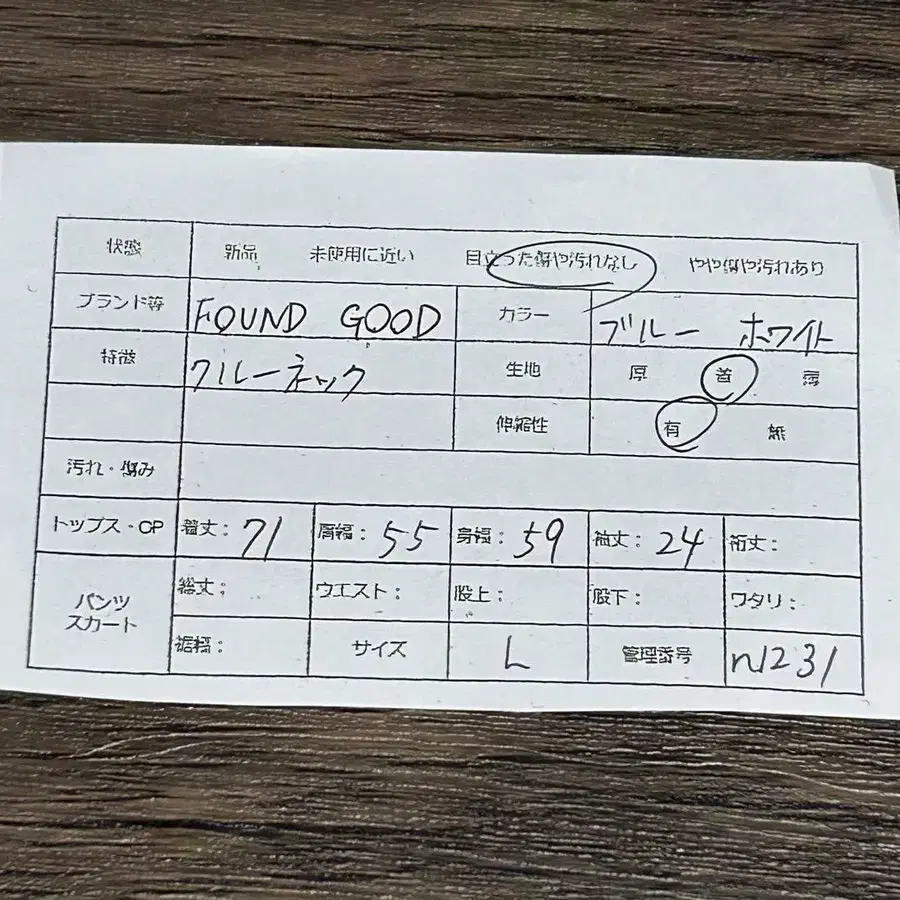 状態 新品 未使用に近い 目立った傷や汚れなし やや傷や汚れあり
ブランド等 FOUND GOOD カラー ブルー ホワイト
特徴 クルーネック 生地 厚 普 薄
伸縮性 有 無
汚れ・傷み
トップス・OP 着丈: 71 肩幅: 55 身幅: 59 袖丈: 24 裄丈:
パンツ スカート 総丈: ウエスト: 股上: 股下: ワタリ:
裾幅: サイズ L 管理番号 n1231